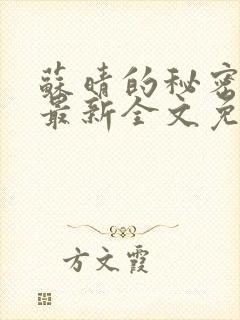 蘇晴的秘密
最新全文免
方文霞